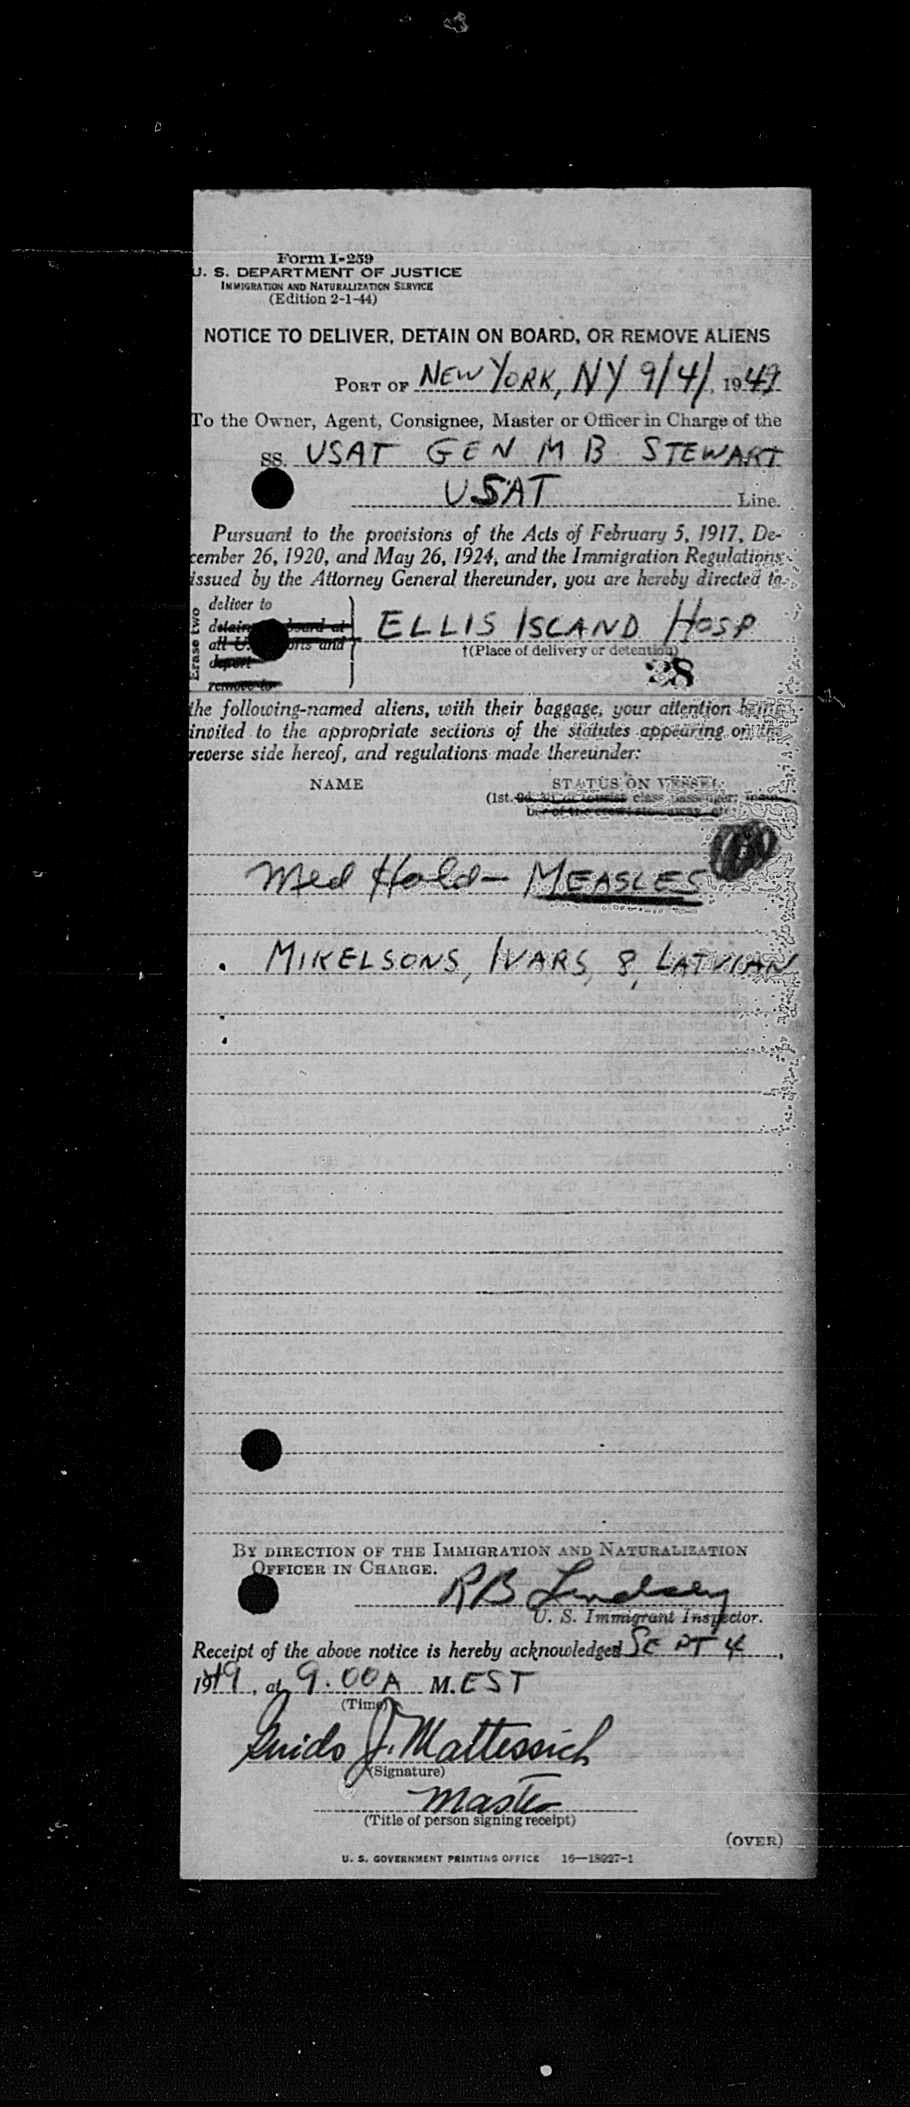 Form I-259
U. S. DEPARTMENT OF JUSTICE
IMMIGRATION AND NATURALIZATION SERVICE
(Edition 2-1-44)
NOTICE TO DELIVER, DETAIN ON BOARD, OR REMOVE ALIENS
PORT OF NEW YORK, NY 9/4/, 1949
To the Owner, Agent, Consignee, Master or Officer in Charge of the
SS. USAT GEN M B STEWART
USAT Line.
Pursuant to the provisions of the Acts of February 5, 1917, De-
cember 26, 1920, and May 26, 1924, and the Immigration Regulations
issued by the Attorney General thereunder, you are hereby directed to
Erase two
deliver to
detain board at
all U. ports and
deport
remove to
ELLIS ISLAND HOSP
†(Place of delivery or detention)
28
the following-named aliens, with their baggage, your attention being
invited to the appropriate sections of the statutes appearing on the
reverse side hereof, and regulations made thereunder:
NAME STATUS ON VESSEL
(1st, 2d, 3d, or tourist class passenger, mem-
ber of the crew, stowaway, etc.
Med Hold - MEASLES
MIKELSONS, IVARS, 8, LATVIAN
BY DIRECTION OF THE IMMIGRATION AND NATURALIZATION
OFFICER IN CHARGE.
RB Lindsey
U. S. Immigrant Inspector.
Receipt of the above notice is hereby acknowledged SEPT 4,
1949, at 9.00 A M. EST
(Time)
Guido J. Mattessich
(Signature)
Master
(Title of person signing receipt)
(OVER)
U. S. GOVERNMENT PRINTING OFFICE 16—18927-1